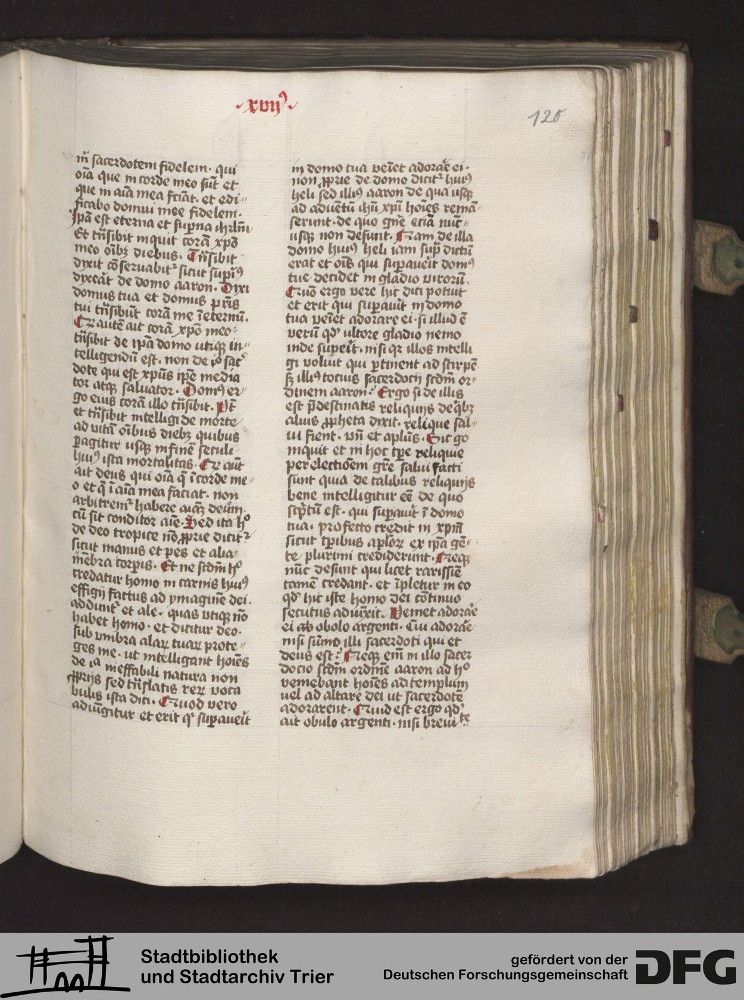 xvij
120
m sacerdotem fidelem. qui
oīa que in corde meo sūt et
que in aīa mea fciāt. et edi
ficabo domui mee fidelem.
ipā est eterna et supna ihrlm
Et trāsibit inquit corā xpō
meo oībz diebus. Trāsibit
dixit cōseruabitr sicut supiꝰ
dixeāt de domo aaron. Dixi
domus tua et domus pris
tui trāsibūt corā me ī eternū.
Qr autē ait corā xpō meo
trāsibit de ipā domo utiqꝫ in
telligendū est. non de ipo sac
dote qui est xpus ipe media
tor atqꝫ saluator. Domꝰ er
go eius corā illo trāsibit. Pt
et trāsibit intelligi de morte
ad vitā oībus diebz quibus
pagitur usqꝫ in finem seculi
huiꝰ ista mortalitas. Qr aut
ait deus qui oīa q̄ ī corde me
o et q̄ ī aīa mea faciat. non
arbitremr habere aiaꝫ deum.
cū sit conditor aīe. Sed ita ho
de deo tropice nō pprie dicitr
sicut manus et pes et alia
mēbra corpis. Et ne scdm ho
credatur homo in carnis huiꝰ
effigij factus ad ymaginē dei.
addunt et ale. quas utiqꝫ nō
habet homo. et dicitur deo.
sub vmbra alaꝝ tuaꝝ prote
ges me. ut intelligant hoīes
de ia ineffabili natura non
pprijs sed trāslatis reꝝ voca
bulis ista dici. Quod vero
adiungitur et erit q supauerit
in domo tua veniet adorare ei.
non pprie de domo dicitr huiꝰ
heli sed illiꝰ aaron de qua usqꝫ
ad aduētū ihu xpi hoīes remā
serunt. de quo gne eciā nūc
usqꝫ non desunt. Nam de illa
domo huiꝰ heli iam supra dictū
erat et oīs qui supauerit domꝰ
tue decidet in gladio viroꝝ.
Quō ergo vere hic dici potuit
et erit qui supauit in domo
tua veniet adorare ei. si illud ē
verū qd ultore gladio nemo
inde supeit. nisi qr illos intelli
gi voluit qui ptinent ad stirpē
sꝫ illiꝰ totius sacerdocij scdm or
dinem aaron. Ergo si de illis
est pdestinatis reliquijs de qbz
alius ppheta dixit. relique sal
ui fient. vn et aplūs. Sic go
inquit et in hoc tpe reliquie
per electionem gre salui facti
sunt quia de talibus reliquijs
bene intelligitur eē de quo
scptū est. qui supauit ī domo
tua. profecto credit in xpm
sicut tpribus aploꝝ ex ipa gē
te plurimi crediderunt. Neqꝫ
nūc desunt qui licet rarissie
tamē credant. et ipletur in eo
qd hic iste homo dei cōtinuo
secutus adiuxit. Veniet adorare
ei ab obolo argenti. Cui adorare
nisi sūmo illi sacerdoti qui et
deus est. Neqꝫ em in illo sacer
docio scdm ordinē aaron ad ho
veniebant hoīes ad templum
vel ad altare dei ut sacerdotē
adorarent. Quid est ergo qd
ait obulo argenti. nisi breuite
Stadtbibliothek
und Stadtarchiv Trier
gefördert von der
Deutschen Forschungsgemeinschaft
DFG